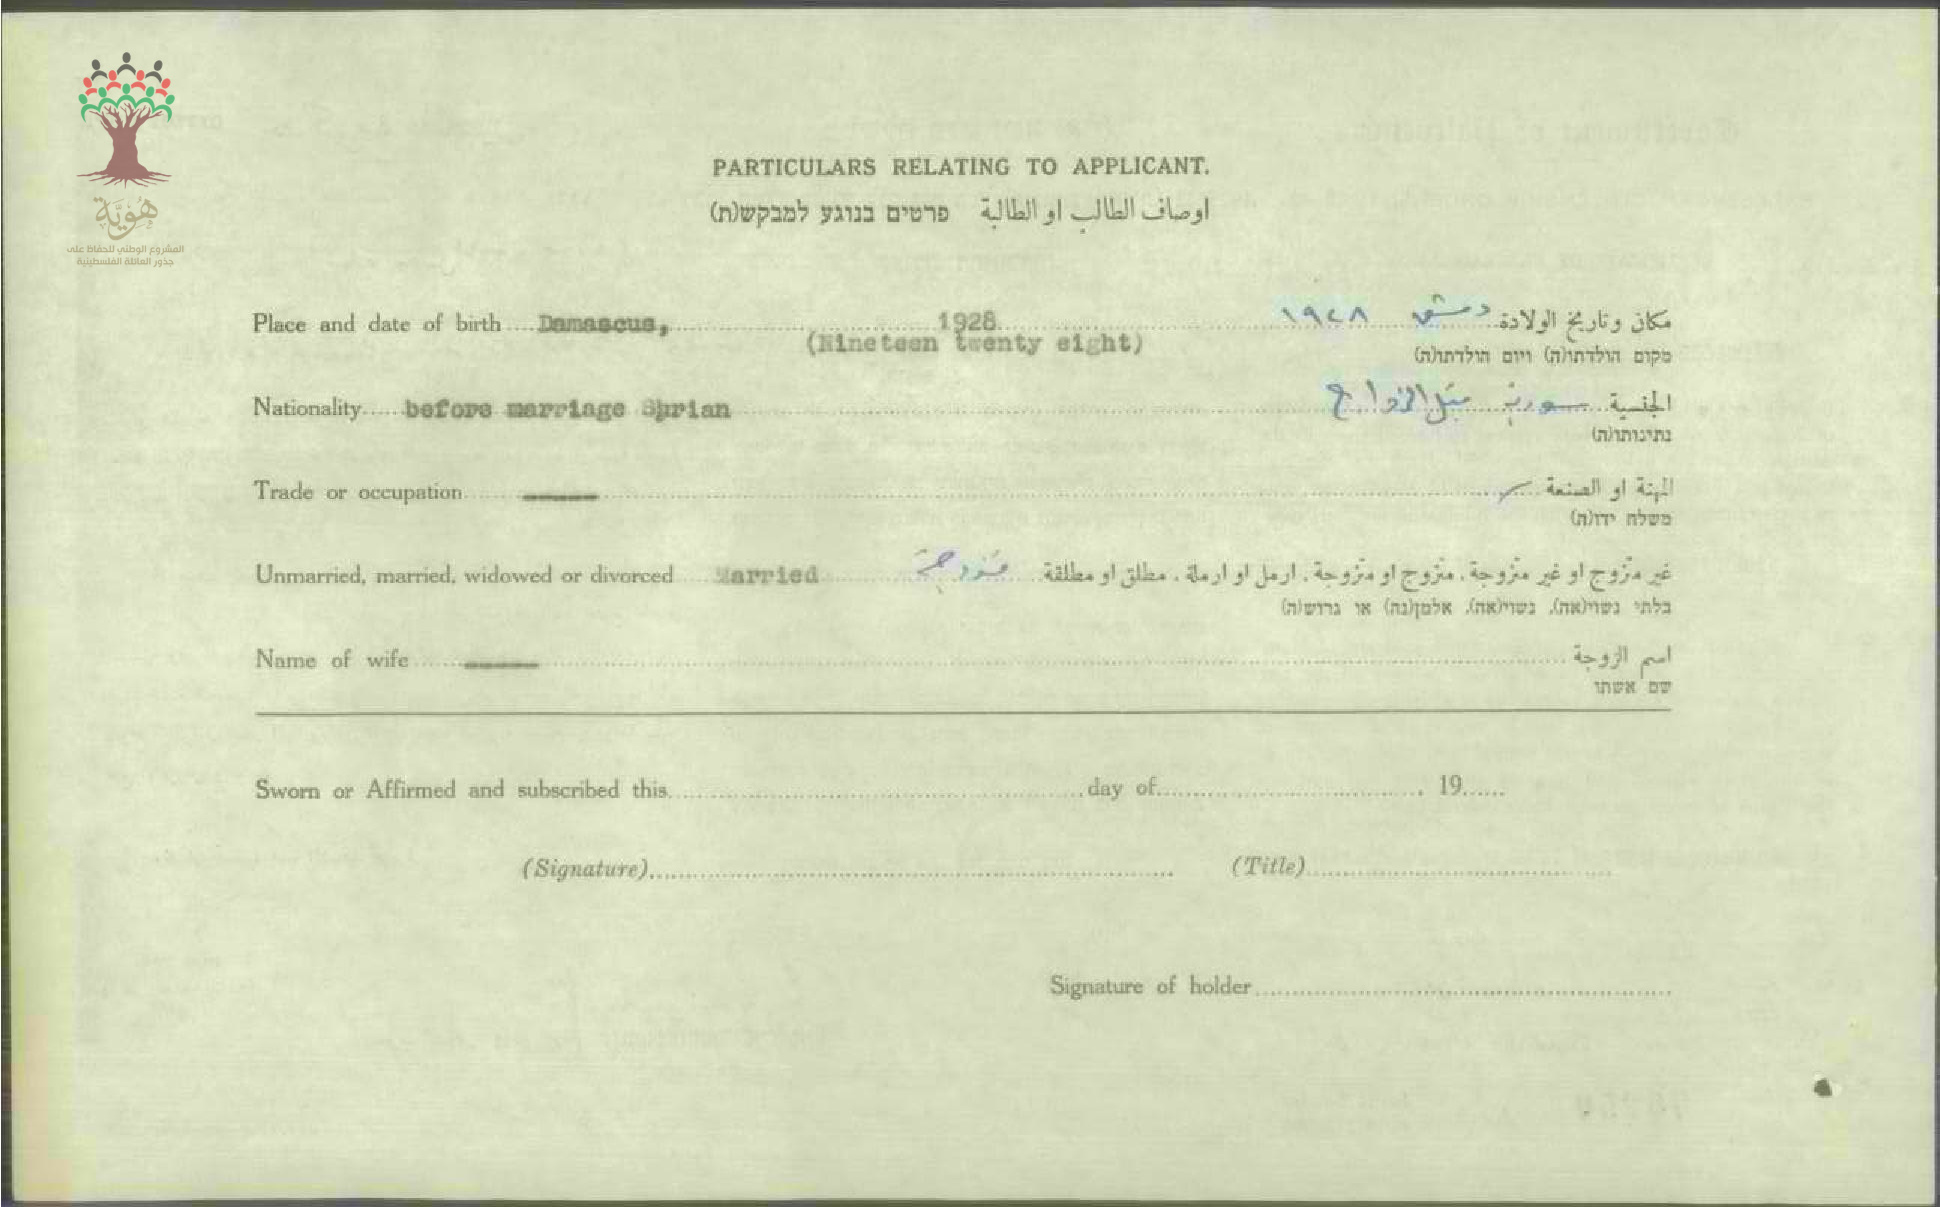 هُوِيَّة
المشروع الوطني للحفاظ على
جذور العائلة الفلسطينية
PARTICULARS RELATING TO APPLICANT.
اوصاف الطالب او الطالبة פרטים בנוגע למבקש(ת)
Place and date of birth Damascus, 1928 دمشق ١٩٢٨ مكان وتاريخ الولادة
(Nineteen twenty eight)
מקום הולדתו(ה) ויום הולדתו(ה)
Nationality before marriage Syrian سورية قبل الزواج الجنسية
נתינותו(ה)
Trade or occupation المهنة او الصنعة
משלח ידו(ה)
Unmarried, married, widowed or divorced Married متزوجة غير متزوج او غير متزوجة، متزوج او متزوجة، ارمل او ارملة، مطلق او مطلقة
בלתי נשוי(אה), נשוי(אה), אלמן(נה) או גרוש(ה)
Name of wife اسم الزوجة
שם אשתו
Sworn or Affirmed and subscribed this day of 19
(Signature) (Title)
Signature of holder